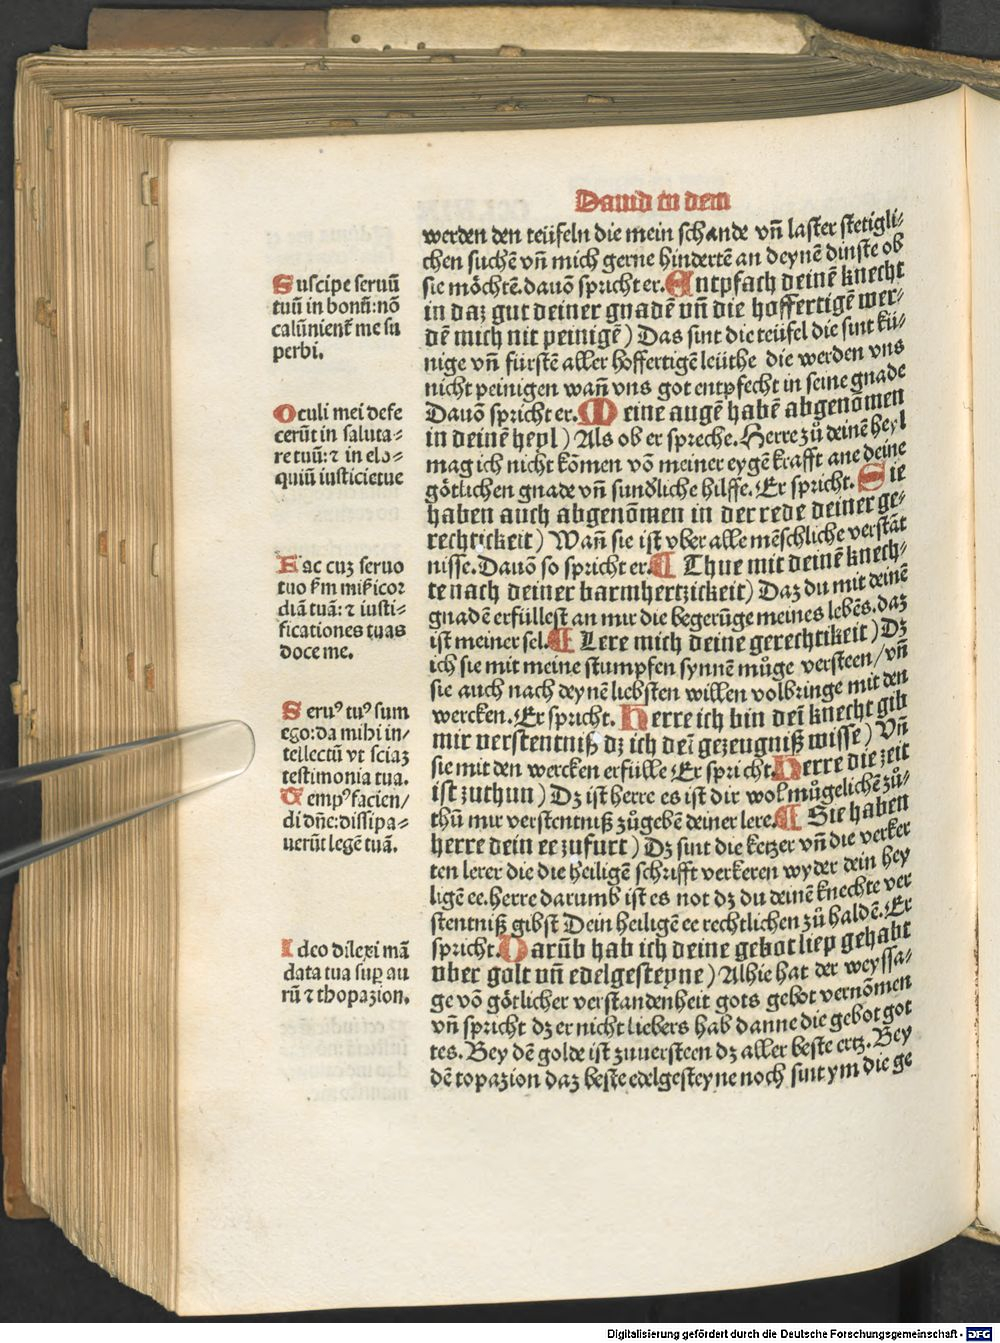 Dauid in dem
werden den teüfeln die mein schande vn̄ laster stetigli⸗
chen suchē vn̄ mich gerne hindertē an deynē dinste ob
sie möchtē. dauō spricht er. Entpfach deinē knecht
in daz gut deiner gnadē vn̄ die hoffertigē wer⸗
dē mich nit peinigē) Das sint die teüfel die sint kü⸗
nige vn̄ fürstē aller hoffertigē leüthe die werden vns
nicht peinigen wan̄ vns got entpfecht in seine gnade
Dauō spricht er. Meine augē habē abgenōmen
in deinē heyl) Als ob er spreche. Herre zů deinē heyl
mag ich nicht kōmen vō meiner eygē krafft ane deine
götlichen gnade vn̄ sunderliche hilffe. Er spricht. Sie
haben auch abgenōmen in der rede deiner ge⸗
rechtickeit) Wan̄ sie ist vber alle mēschliche verstāt
nisse. Dauō so spricht er. ¶ Thue mit deinē knech⸗
te nach deiner barmhertzickeit) Daz du mit deinē
gnadē erfüllest an mir die begerūge meines lebēs. daz
ist meiner sel. ¶ Lere mich deine gerechtikeit) Dz
ich sie mit meine stumpfen synnē můge versteen/ vn̄
sie auch nach deynē liebsten willen volbringe mit den
wercken. Er spricht. Herre ich bin dei̅ knecht gib
mir verstentniß dz ich dei̅ gezeugniß wisse) Vn̄
sie mit den wercken erfülle Er spricht. Herre die zeit
ist zuthun) Dz ist herre es ist dir wol můgelichē zů⸗
thū mir verstentniß zůgebē deiner lere. ¶ Sie haben
herre dein ee zufurt) Dz sint die ketzer vn̄ die verker
ten lerer die die heiligē schrifft verkeren wyder dein hey
ligē ee. herre darumb ist es not dz du deinē knechte ver
stentniß gibst Dein heiligē ee rechtlichen zů haldē. Er
spricht. Darūb hab ich deine gebot liep gehabt
vber golt vn̄ edelgesteyne) Alhie hat der weyssa⸗
ge vō götlicher verstandenheit gots gebot vernōmen
vn̄ spricht dz er nicht liebers hab danne die gebot got
tes. Bey dē golde ist zuuersteen dz aller beste ertz. Bey
dē topazion daz beste edelgesteyne noch sint ym die ge
Suscipe seruū
tuū in bonū: nō
calūnient̄ me su
perbi.
Oculi mei defe
cerūt in saluta⸗
re tuū: ⁊ in elo⸗
quiū iusticie tue
Fac cuʒ seruo
tuo s̄m mīam tuā: ⁊ iusti⸗
ficationes tuas
doce me.
Seruꝰ tuꝰ sum
ego: da mihi in/
tellectū vt sciaʒ
testimonia tua.
Tempꝰ facien/
di dn̄e: dissipa⸗
uerūt legē tuā.
Ideo dilexi mā
data tua suꝑ au
rū ⁊ thopazion.
Digitalisierung gefördert durch die Deutsche Forschungsgemeinschaft - DFG